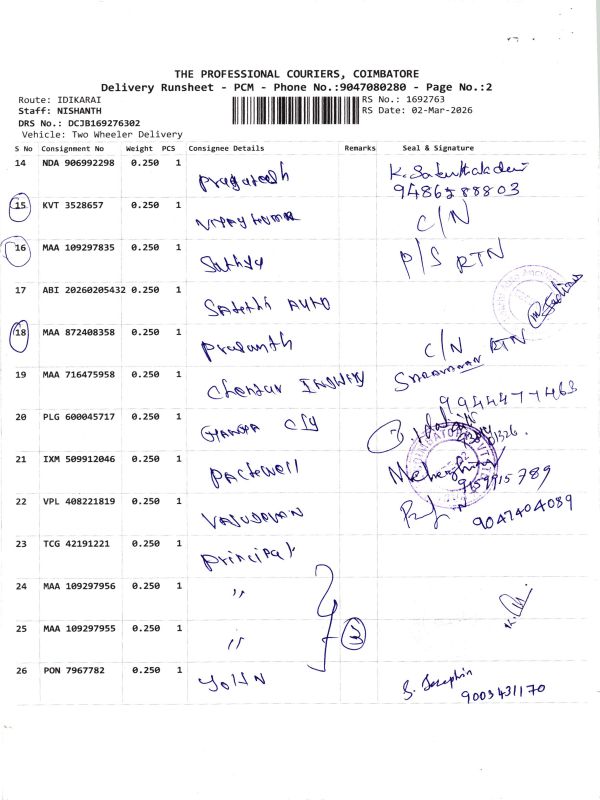 THE PROFESSIONAL COURIERS, COIMBATORE
Delivery Runsheet - PCM - Phone No.:9047080280 - Page No.:2
Route: IDIKARAI
RS No.: 1692763
Staff: NISHANTH
RS Date: 02-Mar-2026
DRS No.: DCJB169276302
Vehicle: Two Wheeler Delivery
S No Consignment No Weight PCS Consignee Details Remarks Seal & Signature
14 NDA 906992298 0.250 1
9486288803
15 KVT 3528657 0.250 1 C/N
16 MAA 109297835 0.250 1 Sathya P/S RTN
17 ABI 20260205432 0.250 1 Sakthi AUTO
18 MAA 872408358 0.250 1 Prasanth C/N RTN
19 MAA 716475958 0.250 1 Saravanan
9944477463
20 PLG 600045717 0.250 1
21 IXM 509912046 0.250 1
9159915789
22 VPL 408221819 0.250 1 VASUDEVAN
9047404089
23 TCG 42191221 0.250 1 Principal
24 MAA 109297956 0.250 1 "
25 MAA 109297955 0.250 1 " 3
26 PON 7967782 0.250 1 JOHN S. Josephin
9003431170